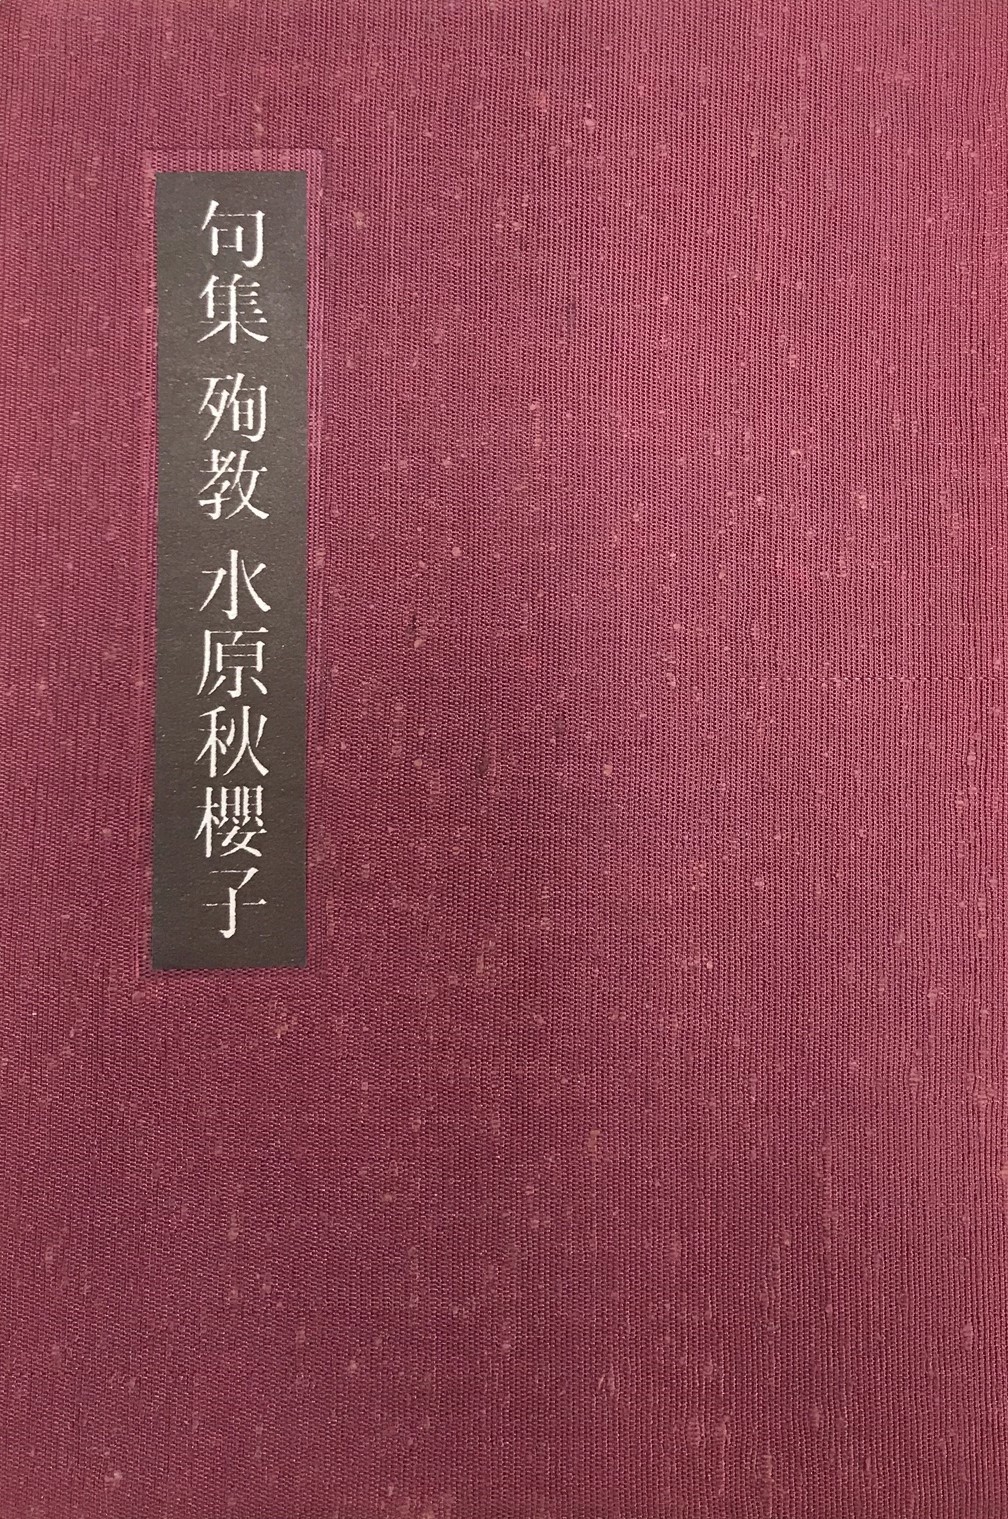 句集 殉教 水原秋櫻子